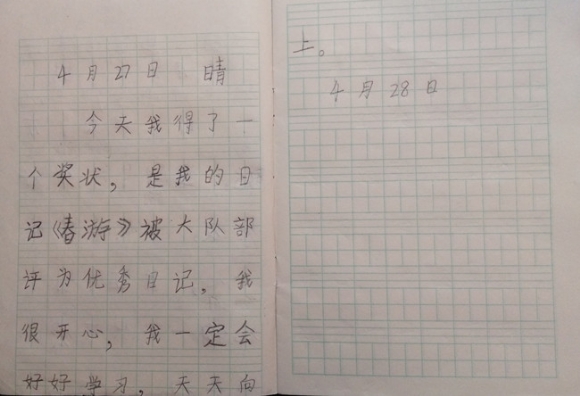 4月27日 晴
今天我得了一
个奖状，是我的日
记《春游》被大队部
评为优秀日记，我
很开心，我一定会
好好学习，天天向
上。
4月28日